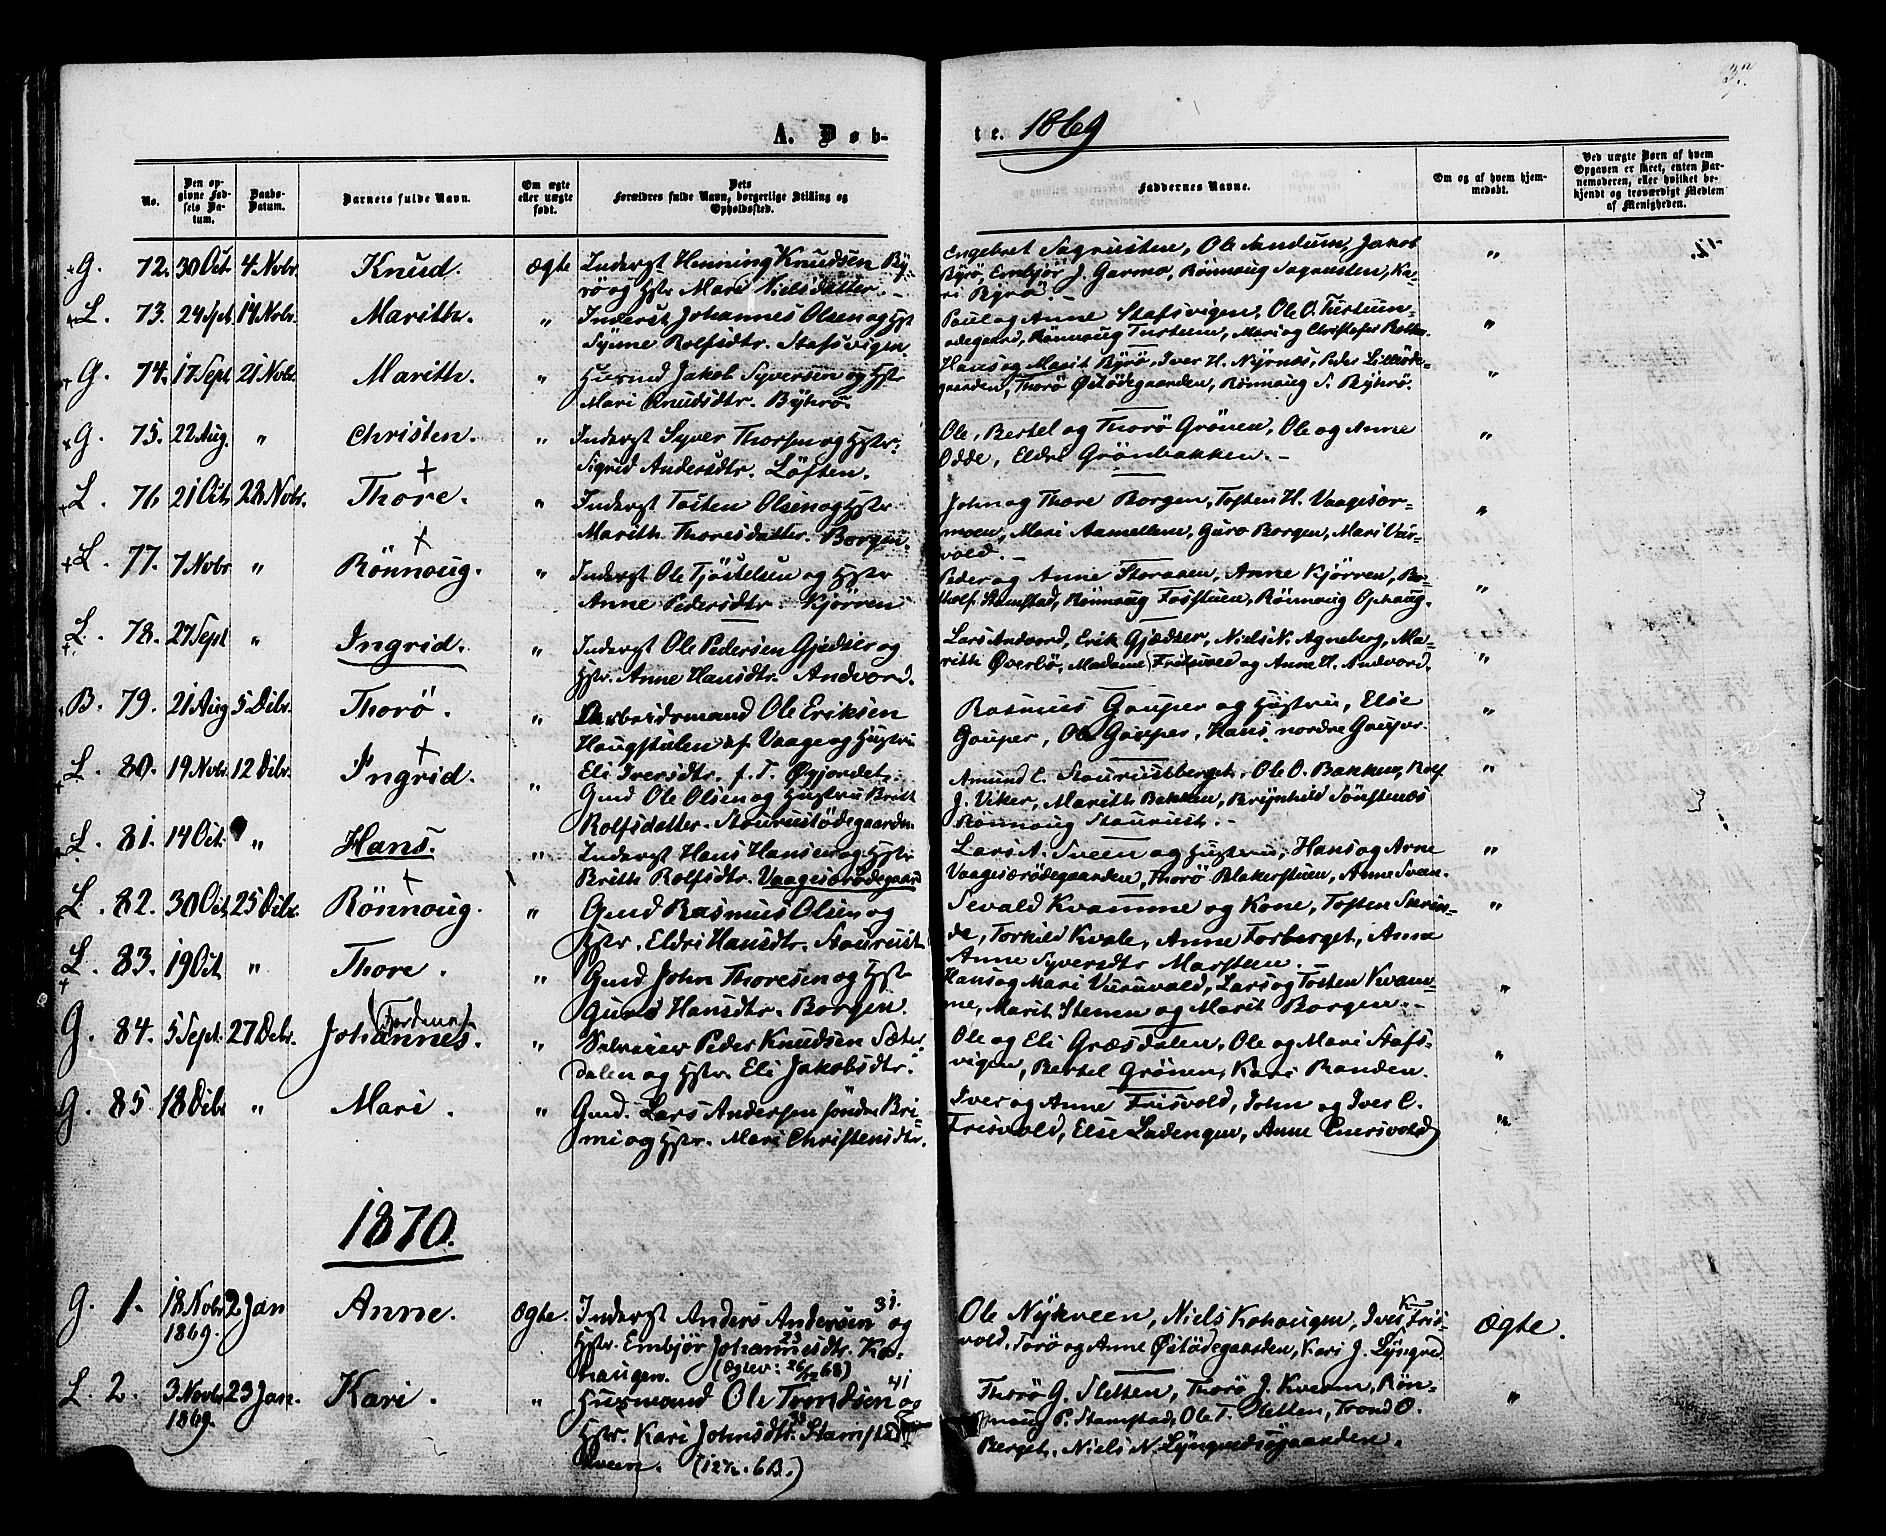 A. Døb-
te. 1869
No.
Den opgivne Fødsels Datum.
Daabs-Datum.
Barnets fulde Navn.
Om ægte eller uægte født.
Dets Forældres fulde Navn, borgerlige Stilling og Opholdssted.
Faddernes Navne.
Om og af hvem hjemmedøbt.
Ved uægte Børn af hvem Opgaven er skeet, enten Barnemoderen, eller hvilket bekjendt og troværdigt Medlem af Menigheden.
G. 72. 30 Oct. 4 Novbr. Knud. Ægte Inderst Henning Knudsen By-
rø og Hstr Mari Nielsdatter. -
Engebret Sagrusten, Ole Sandum, Jakob
Byrø, Embjör J. Garmo, Rönnoug Sagrusten, Ka-
ri Byrö. - "
L. 73. 24 Sept. 14 Novbr. Marith. " Inderst Johannes Olsen og Hst
Synne Rolfsdtr. Stafsvigen.
Poul og Anne Stafsvigen, Ole O. Tustuun-
ödegaard, Rönnoug Tustuen, Mari og Christofer "
G. 74. 17 Sept 21 Novbr. Marith. " Husmd Jakob Syversen og Hstr
Mari Knudsdtr. Byhrö.
Hans og Marit Byrö, Iver H. Nyrnes, Peder Lilleöde-
gaarden, Thorö Östödegaarden, Rönnoug S. Byhrö. "
G. 75. 22 Aug. " Christen. " Inderst Syver Thorsen og Hstr.
Sigrid Andersdtr. Löften.
Ole, Bertel og Thorö Grönen, Ole og Anne
Odde, Eldri Grönbakken. - "
L. 76 21 Oct. 28 Novbr. Thore. " Inderst Tosten Olsen og Hstr
Marith Thoresdatter. Borgen.
John og Thore Borgen, Tosten H. Vaagesar-
moen, Mari Aamellem, Guro Borgen, Mari Vur-
vold. - "
L. 77. 7 Novbr " Rönnoug. " Inderst Ole Tjöstelsen og Hstr
Anne Pedersdtr. Kjörren
Peder og Anne Storaaen, Anne Kjörren, Bo-
tholf Stamstad, Rönnoug Fosstuen, Rönnoug Ophaug. "
L. 78. 27 Sept " Ingrid. " Inderst Ole Pedersen Gjedser og
Hstr. Anne Hansdtr. Andvord.
Lars Andvord, Erik Gjædser, Niels N. Agneberg, Ma-
rith Överlö, Madame Frisvold og Anne H. Andvord. "
B. 79. 21 Aug 5 Debr. Thorö. " Arbeidsmand Ole Eriksen
Haugstulen af Vaage og Hustru
Eli Iversdtr. f. T. Øgjordet.
Rasmus Gauper og Hustru, Else
Gauper, Ole Gauper, Hans nordre Gauper. "
L. 80. 19 Novbr. 12 Debr. Ingrid. " Gmd Ole Olsen og Hustru Britt
Rolfsdatter. Staurustödegaarden
Amund C. Staurustberget, Ole O. Bakken, Rolf
J. Viker, Marith Bakken, Brynhild Sönstenæs
Rönnoug Staurust. - "
L. 81. 14 Oct. " Hans. " Inderst Hans Hansen og Hstr
Brith Rolfsdtr. Vaagesarödegaar
Lars A. Sveen og Hustru, Hans og Arne
Vaagesærödegaarden, Thorö Blakerstuen, Anne Sveen. "
L. 82. 30 Oct. 25 Debr. Rönnoug. " Gmd Rasmus Olsen og
Hstr. Eldri Hansdtr. Staurust
Sevald Kvamme og Kone, Tosten Skrin-
de, Torkild Kvale, Anne Forberget, Anna
Anne Syversdtr Marsteen. - "
L. 83. 19 Oct. " Thore. " Gmd John Thoresen og Hstr
Guro Hansdtr. Borgen.
Hans og Mari Vuruvald, Lars og Tosten Kvam-
me, Marit Stenen og Marit Borgen. - "
G. 84. 5 Sept. 27 Debr. Johannes. " Selveier Peder Knudsen Sæter
dalen og Hstr. Eli Jakobsdtr.
Ole og Eli Græsdalen, Ole og Mari Stafs-
vigen, Bertel Grönen, Kari Randen. "
G. 85 18 Debr " Mari. " Gmd. Lars Andersen söndre Bri-
mi og Hstr. Mari Christensdtr.
Iver og Anne Frisvold, John og Iver C.
Frisvold, Else Ladengen, Anne Enersvold "
1870.
G. 1. 18 Novbr 1869. 2 Jan Anne. Ægte. Inderst Anders Andersen 31. og
Hstr. Embjør Johannesdtr. 23 Ko-
haugen. (Ægtev: 26/12 68)
Ole Nykveen, Niels Kohaugen, Iver K Fris-
vold, Torö og Anne Östödegaarden, Kari J. Lyngved. Ægte.
L. 2. 3 Novbr 1869. 23 Jan. Kari. " Husmand Ole Trondsen 41 og
Hstr. Kari Johnsdtr. Stamstad
kveen. (12 1/2. 6 B.)
Thorö G. Sletten, Thorö J. Kveen, Rön-
noug P. Stamstad, Ole T. Sletten, Trond O.
Berget, Niels N. Lyngvedsögaarden. "